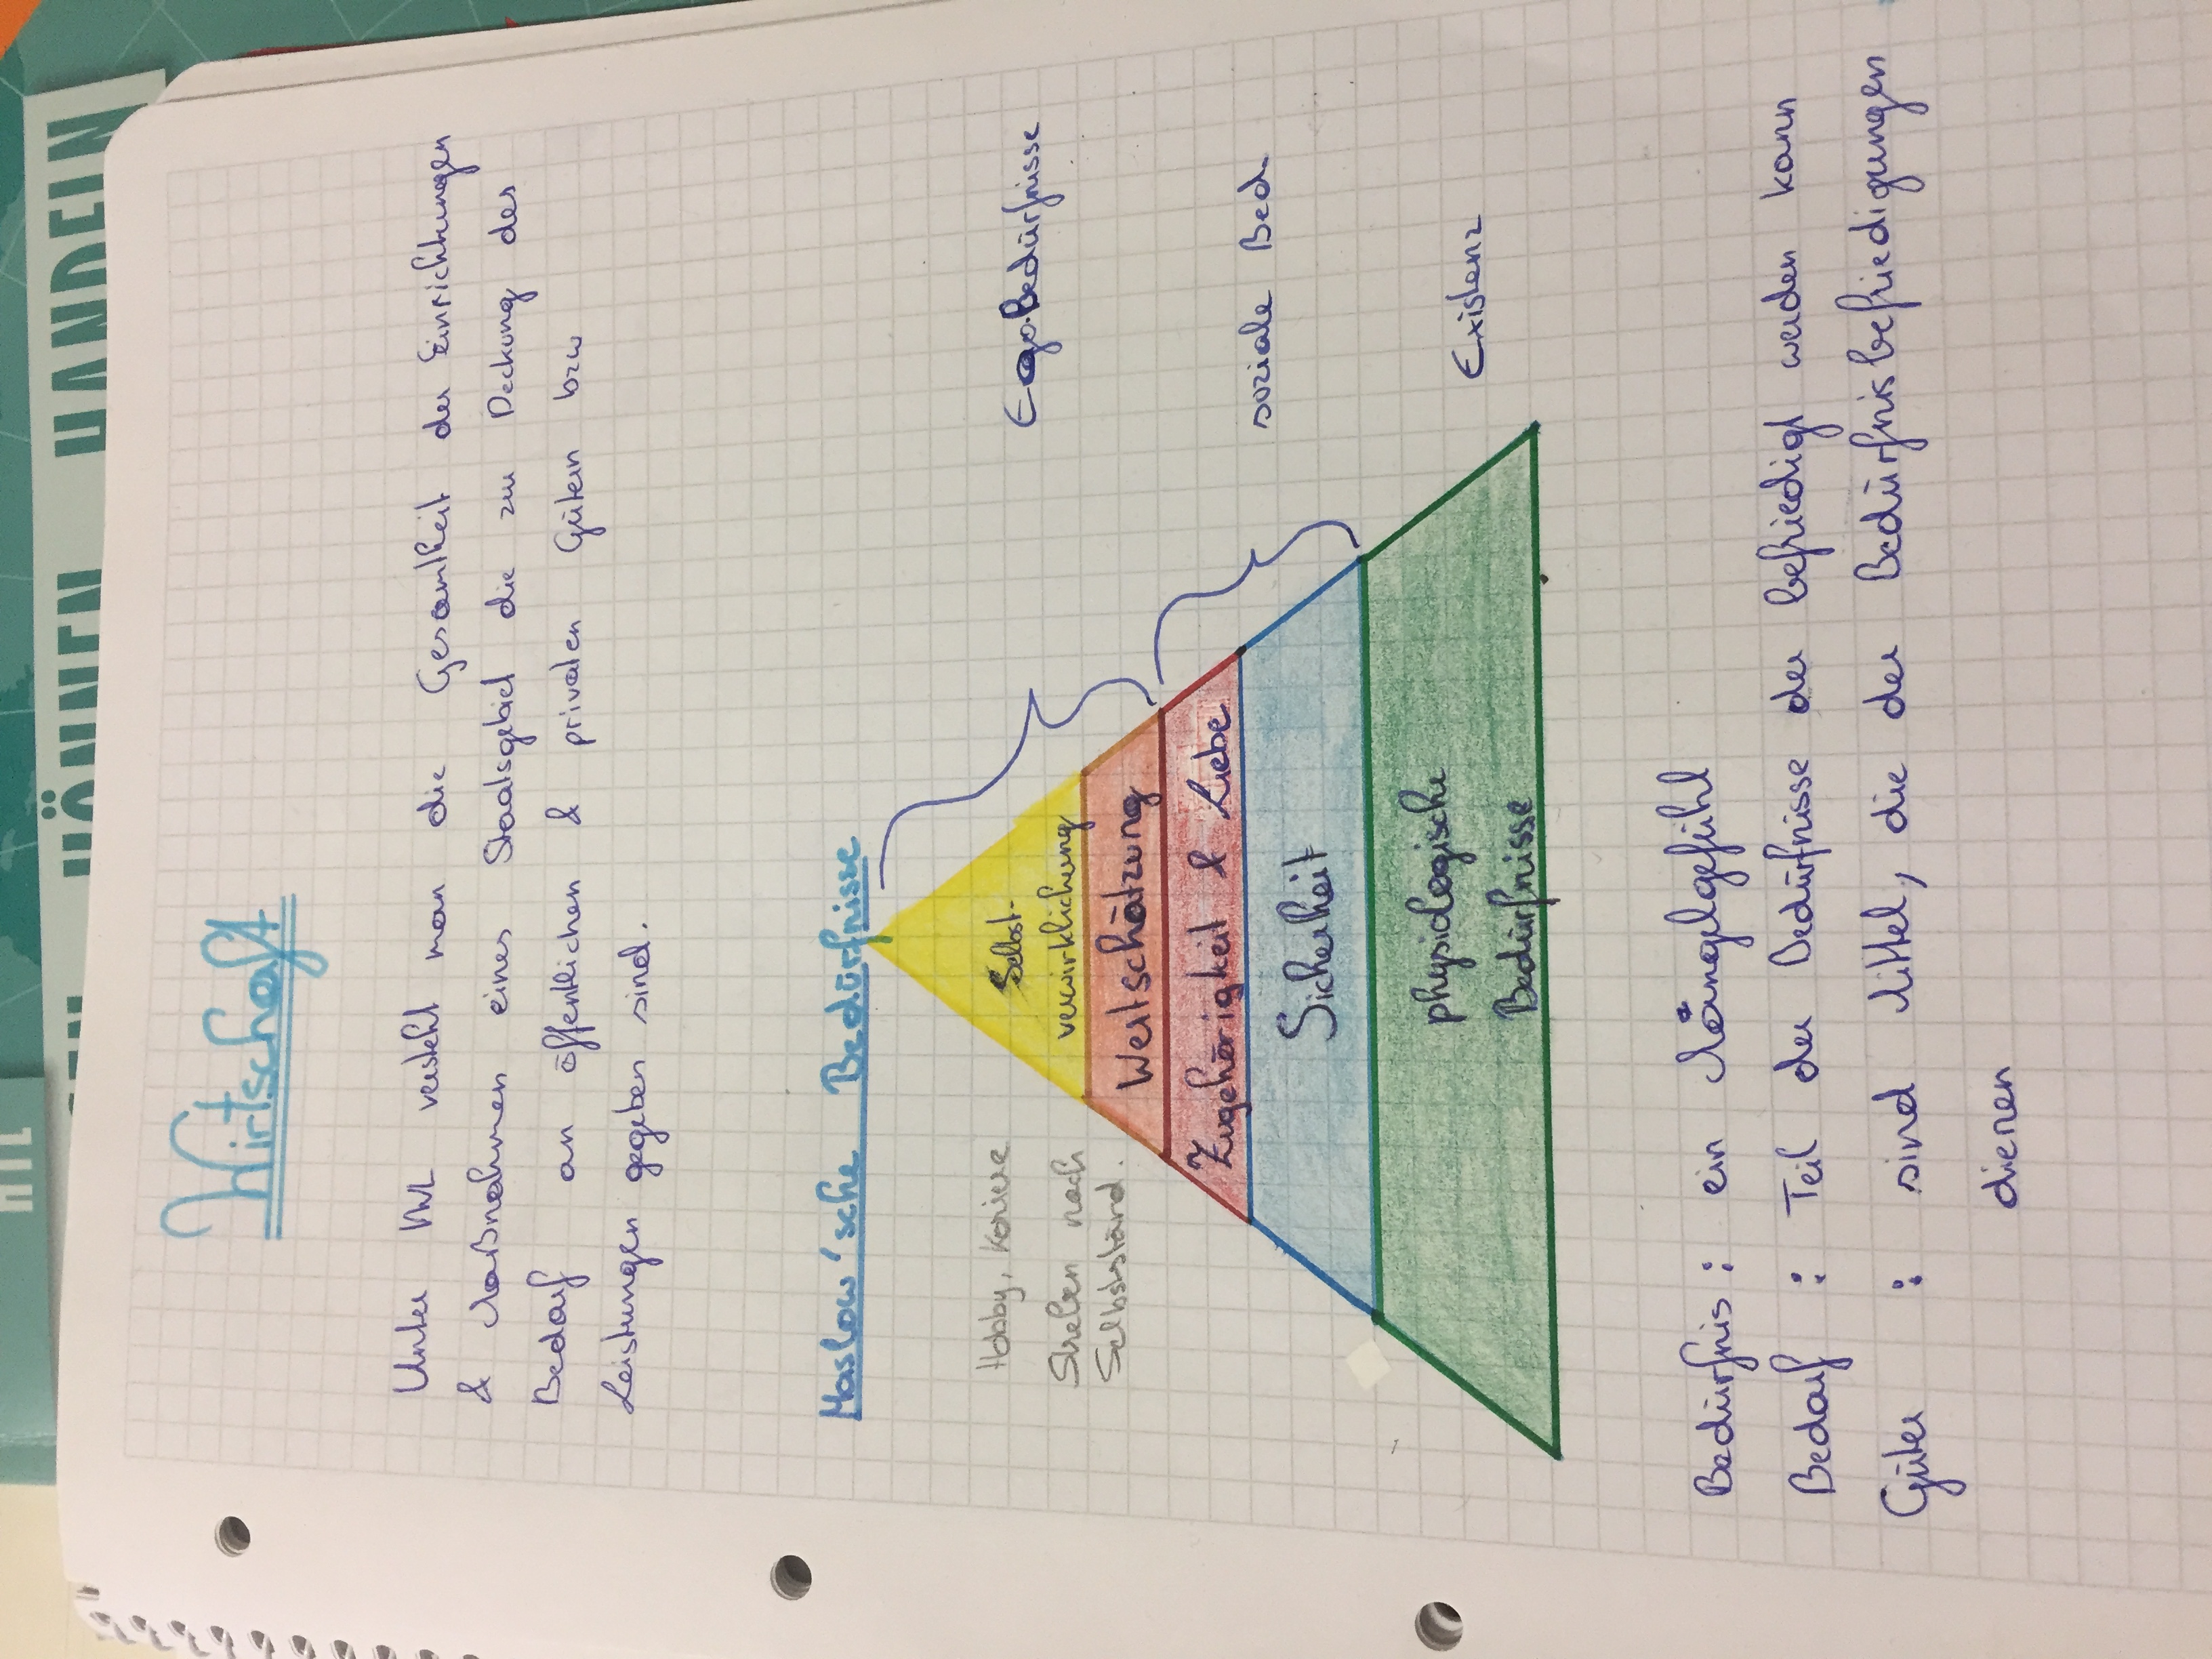 HTL
KÖNNEN HANDELN
Wirtschaft
Unter VWL versteht man die Gesamtheit der Einrichtungen
& Maßnahmen eines Staatsgebiet die zur Deckung des
Bedarf an öffentlichen & privaten Gütern bzw
Leistungen gegeben sind.
Maslow'sche Bedürfnisse
Hobby, Kariere
Streben nach
Selbstständ.
Selbst-
verwirklichung
Wertschätzung
Zugehörigkeit & Liebe
Sicherheit
physiologische
Bedürfnisse
Ego.Bedürfnisse
soziale Bed.
Existenz
Bedürfnis : ein Mängelgefühl
Bedarf : Teil der Bedürfnisse der befriedigt werden kann
Güter : sind Mittel, die der Bedürfnisbefriedigungen
dienen